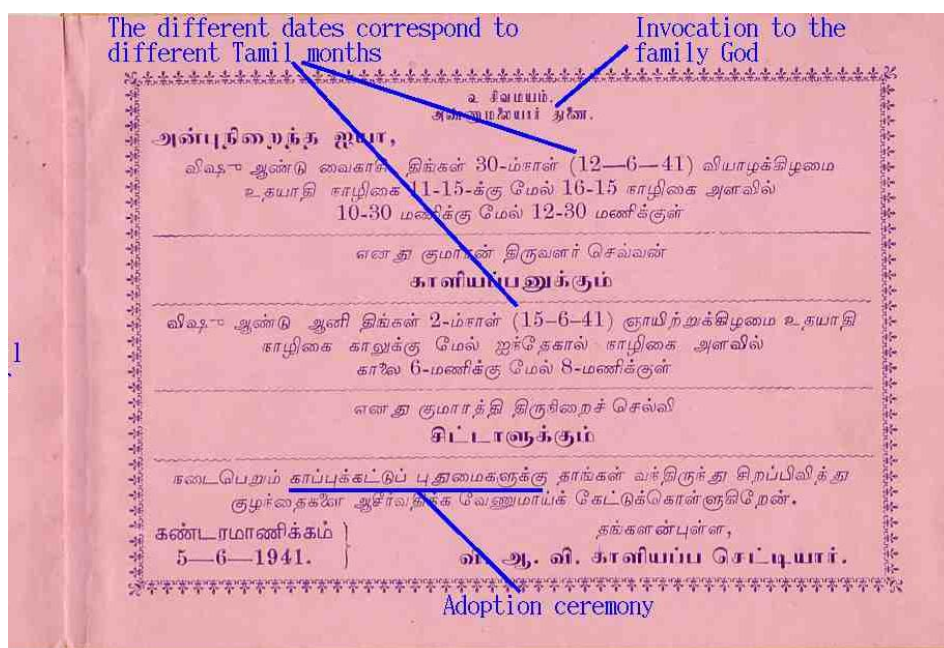 The different dates correspond to
different Tamil months
Invocation to the
family God
உ சிவமயம்.
அண்ணாமலையார் துணை.
அன்புநிறைந்த ஐயா,
விஷு ஆண்டு வைகாசி திங்கள் 30-ம்நாள் (12—6—41) வியாழக்கிழமை
உதயாதி நாழிகை 11-15-க்கு மேல் 16-15 நாழிகை அளவில்
10-30 மணிக்கு மேல் 12-30 மணிக்குள்
எனது குமாரன் திருவளர் செல்வன்
காளியப்பனுக்கும்
விஷு ஆண்டு ஆனி திங்கள் 2-ம்நாள் (15-6-41) ஞாயிற்றுக்கிழமை உதயாதி
நாழிகை காலுக்கு மேல் ஐந்தேகால் நாழிகை அளவில்
காலை 6-மணிக்கு மேல் 8-மணிக்குள்
எனது குமாரத்தி திருநிறைச் செல்வி
சிட்டாளுக்கும்
நடைபெறும் காப்புக்கட்டுப் புதுமைகளுக்கு தாங்கள் வந்திருந்து சிறப்பிவித்து
குழந்தைகளை ஆசீர்வதிக்க வேணுமாய்க் கேட்டுக்கொள்ளுகிறேன்.
கண்டரமாணிக்கம்
5—6—1941.
தங்களன்புள்ள,
வி. ஆ. வி. காளியப்ப செட்டியார்.
Adoption ceremony
l